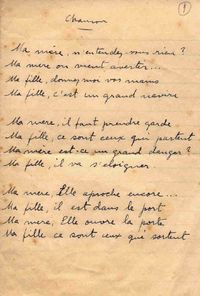 1
Chanson
Ma mère, n'entendez-vous rien ?
Ma mère on vient avertir...
Ma fille, donnez-moi vos mains
Ma fille, c'est un grand navire
Ma mère, il faut prendre garde
Ma fille, ce sont ceux qui partent
Ma mère est-ce un grand danger ?
Ma fille, il va s'éloigner
Ma mère, Elle aproche encore...
Ma fille, il est dans le port
Ma mère, Elle ouvre la porte
Ma fille ce sont ceux qui sortent